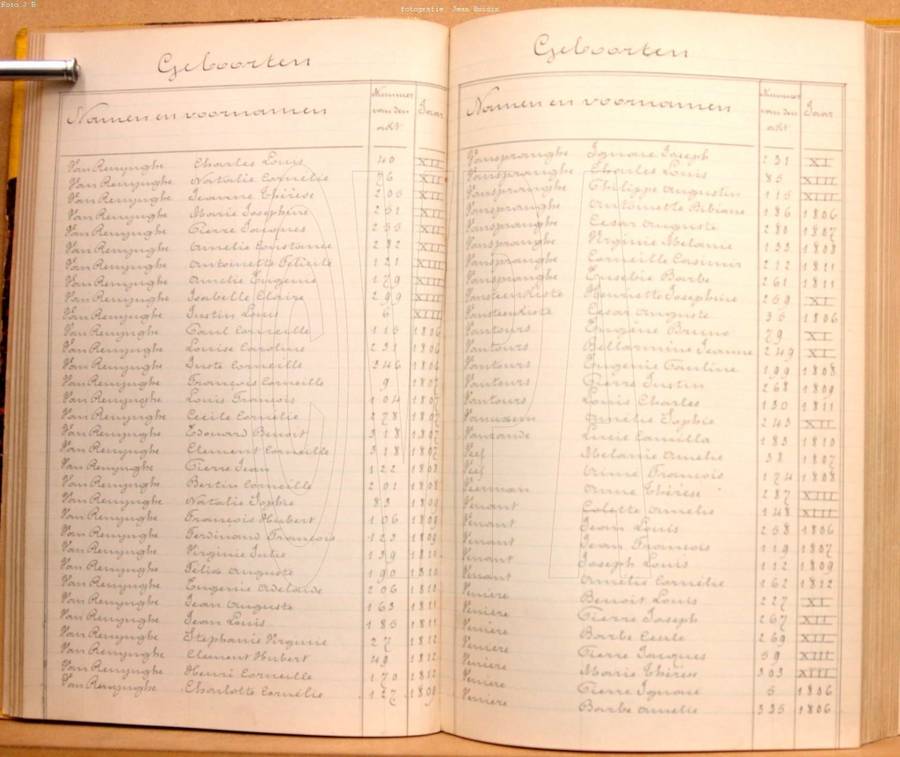 Foto J B
fotografie: Jean Boidin
Geboorten
Namen en voornamen Nummer van den akt Jaar
Van Renynghe Charles Louis 40 XII
Van Renynghe Natalie Cornelie 76 XII
Van Renynghe Jeanne Thérèse 205 XII
Van Renynghe Marie Josephine 251 XII
Van Renynghe Pierre Jacques 255 XII
Van Renynghe Amelie Constance 282 XII
Van Renynghe Antoinette Felicité 121 XIII
Van Renynghe Amelie Eugenie 179 XIII
Van Renynghe Isabelle Claire 299 XIII
Van Renynghe Justin Louis 6 XIII
Van Renynghe Paul Corneille 115 1806
Van Renynghe Louise Caroline 231 1806
Van Renynghe Juste Corneille 346 1806
Van Renynghe François Corneille 9 1807
Van Renynghe Louis François 104 1807
Van Renynghe Cecile Cornelie 278 1807
Van Renynghe Edouard Benoit 318 1807
Van Renynghe Clement Corneille 318 1807
Van Renynghe Pierre Jean 122 1808
Van Renynghe Bertin Corneille 201 1808
Van Renynghe Natalie Sophie 83 1809
Van Renynghe François Hubert 106 1809
Van Renynghe Ferdinand François 123 1809
Van Renynghe Virginie Julie 139 1810
Van Renynghe Felix Auguste 190 1810
Van Renynghe Eugenie Adelaide 206 1810
Van Renynghe Jean Auguste 163 1811
Van Renynghe Jean Louis 185 1811
Van Renynghe Stephanie Virginie 27 1812
Van Renynghe Clement Hubert 49 1812
Van Renynghe Henri Corneille 170 1812
Van Renynghe Charlotte Cornélie 127 1809
Geboorten
Namen en voornamen Nummer van den akt Jaar
Vanspranghe Ignace Joseph 231 XI
Vanspranghe Charles Louis 85 XIII
Vanspranghe Philippe Augustin 115 XIII
Vanspranghe Antoinette Bibiane 186 1806
Vanspranghe Cesar Auguste 280 1807
Vanspranghe Virginie Melanie 133 1808
Vanspranghe Corneille Casimir 212 1811
Vanspranghe Eusebie Barbe 261 1811
Vansteenkiste Henriette Josephine 259 XI
Vansteenkiste Cesar Auguste 35 1806
Vantours Eugène Bruno 79 XI
Vantours Bellarmine Jeanne 249 XI
Vantours Eugenie Pauline 199 1808
Vantours Pierre Justin 268 1809
Vantours Louis Charles 130 1811
Amelie Sophie 243 XII
Vanzande Lucie Camilla 183 1810
Melanie Amelie 38 1807
François 174 1808
Veerman Anne Thérèse 287 XIII
Venant Colette Amelie 148 XIII
Venant Jean Louis 258 1806
Venant Jean François 119 1807
Venant Joseph Louis 112 1809
Venant Amelie Cornélie 162 1812
Veniere Benoit Louis 227 XI
Veniere Pierre Joseph 267 XII
Veniere Barbe Cecile 269 XII
Veniere Pierre Jacques 59 XIII
Veniere Marie Thérèse 303 XIII
Veniere Pierre Ignace 5 1806
Veniere Barbe Amelie 335 1806